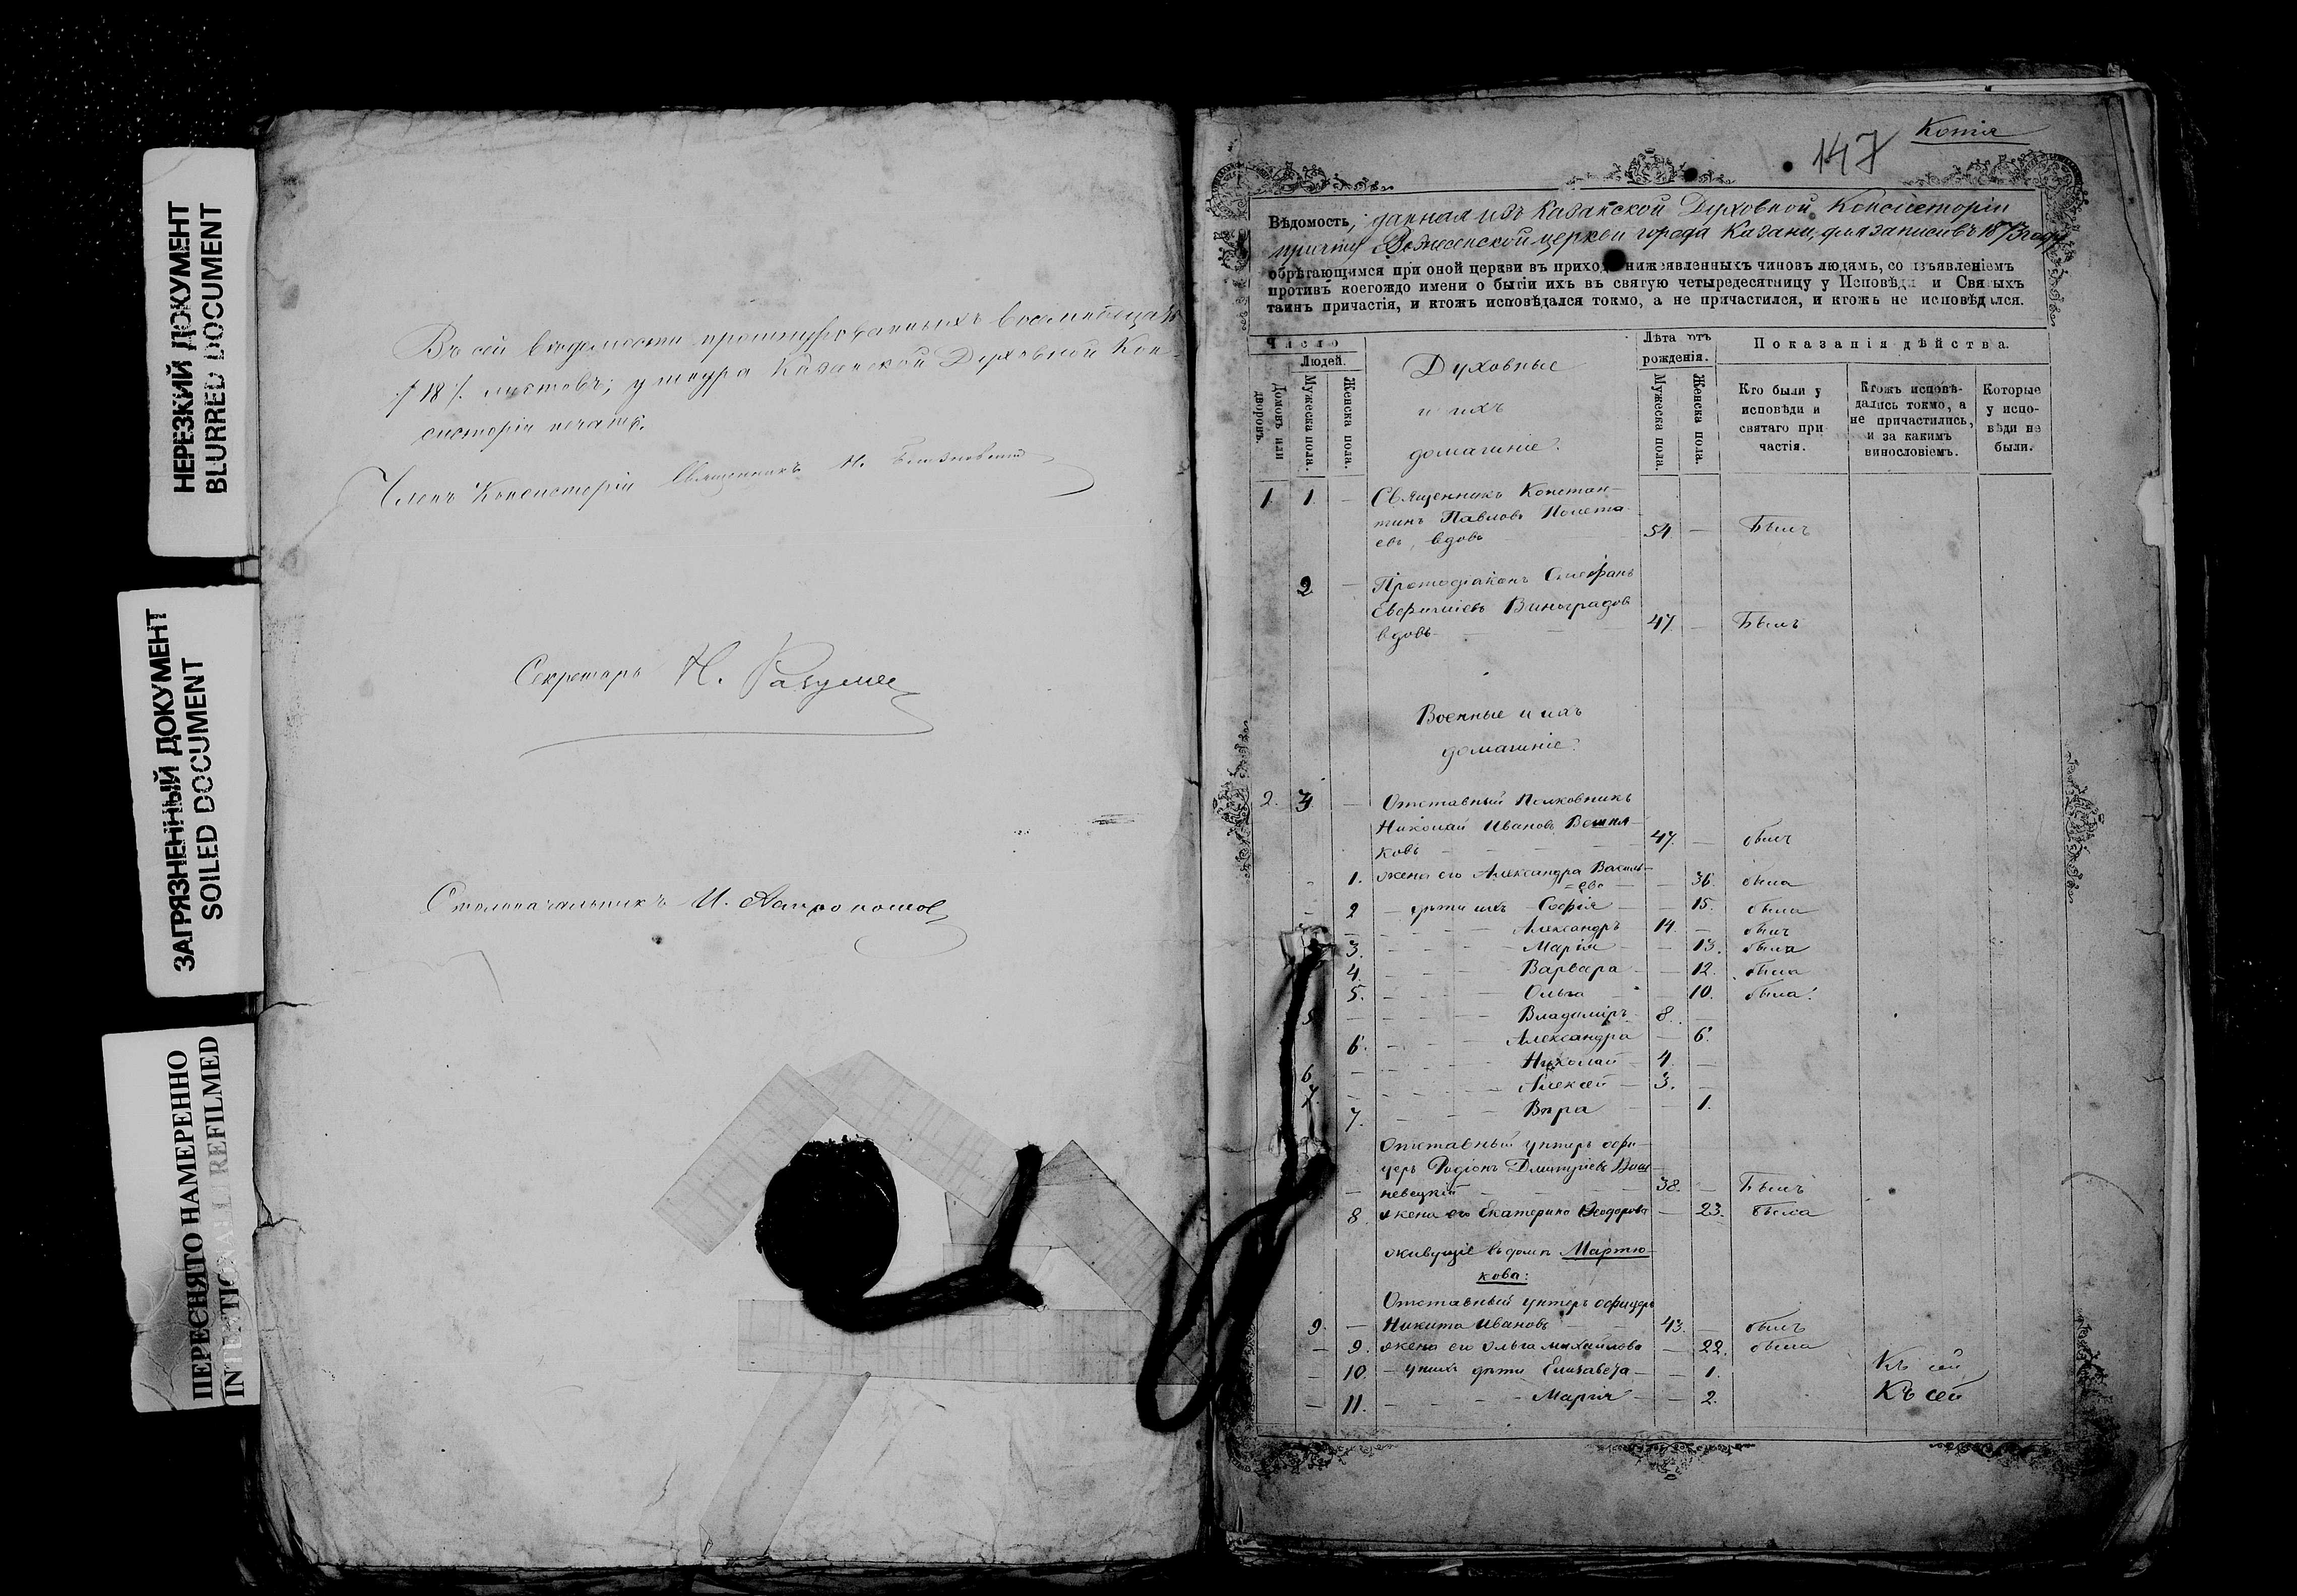 НЕРЕЗКИЙ ДОКУМЕНТ
BLURRED DOCUMENT
ЗАГРЯЗНЕННЫЙ ДОКУМЕНТ
SOILED DOCUMENT
ПЕРЕСНЯТО НАМЕРЕННО
INTENTIONALLY REFILMED
Въ сей ведомости прошнурованныхъ восемнадцать
/18/. листовъ; у шнура Казанской Духовной Кон-
систоріи печать.
Членъ Консисторіи Священникъ
Секретарь Н. Разумов
Столоначальникъ И.
Копія
147
Вѣдомость, данная изъ Казанской Духовной Консисторіи
причту Вознесенской церкви города Казани, для записи въ 1873 году
обрѣтающимся при оной церкви въ приходѣ нижеявленныхъ чиновъ людямъ, со изъявленіемъ
противъ коегождо имени о бытіи ихъ въ святую четыредесятницу у Исповѣди и Святыхъ
таинъ причастія, и ктожъ исповѣдался токмо, а не причастился, и ктожъ не исповѣдался.
Число
Людей.
Домовъ или дворовъ.
Мужеска пола.
Женска пола.
Духовные
и ихъ
домашніе.
Лѣта отъ
рожденія.
Мужеска пола.
Женска пола.
Показанія дѣйства.
Кто были у
исповѣди и
святаго при
частія.
Ктожъ исповѣ-
дались токмо, а
не причастились,
и за какимъ
винословіемъ.
Которые
у испо-
вѣди не
были.
1. 1. — Священникъ Констан-
тинъ Павловъ Полета-
евъ, вдовъ 54. — Былъ
2 — Протодіаконъ Стефанъ
Евфиміевъ Виноградов
вдовъ 47. — Былъ
Военные и ихъ
домашніе.
2. 3. — Отставный Полковникъ
Николай Ивановъ
ковъ 47. — былъ
1. жена его Александра Василь-
=ева — 36. была
2 — дѣти ихъ Софія — 15. была
Александръ 14. — былъ
3. Марія — 13. была
4. Варвара — 12. была
5. Ольга — 10. была.
5 Владиміръ 8. —
6. Александра — 6.
6 Николай 4. —
7. Алексей 3. —
7. Вѣра — 1.
Отставный унтеръ офи-
церъ Родіонъ Дмитріевъ Виш-
невецкій 38. — Былъ
8. жена его Екатерина Ѳеодорова — 23. Была
живущіе въ домѣ Мартю-
кова:
Отставный унтеръ офицеръ
9. — Никита Ивановъ 43. — былъ
— 9. жена его Ольга Михайлова — 22. была
— 10. — у нихъ дѣти Елизавета — 1. Къ сей
— 11. Марія — 2. Къ сей